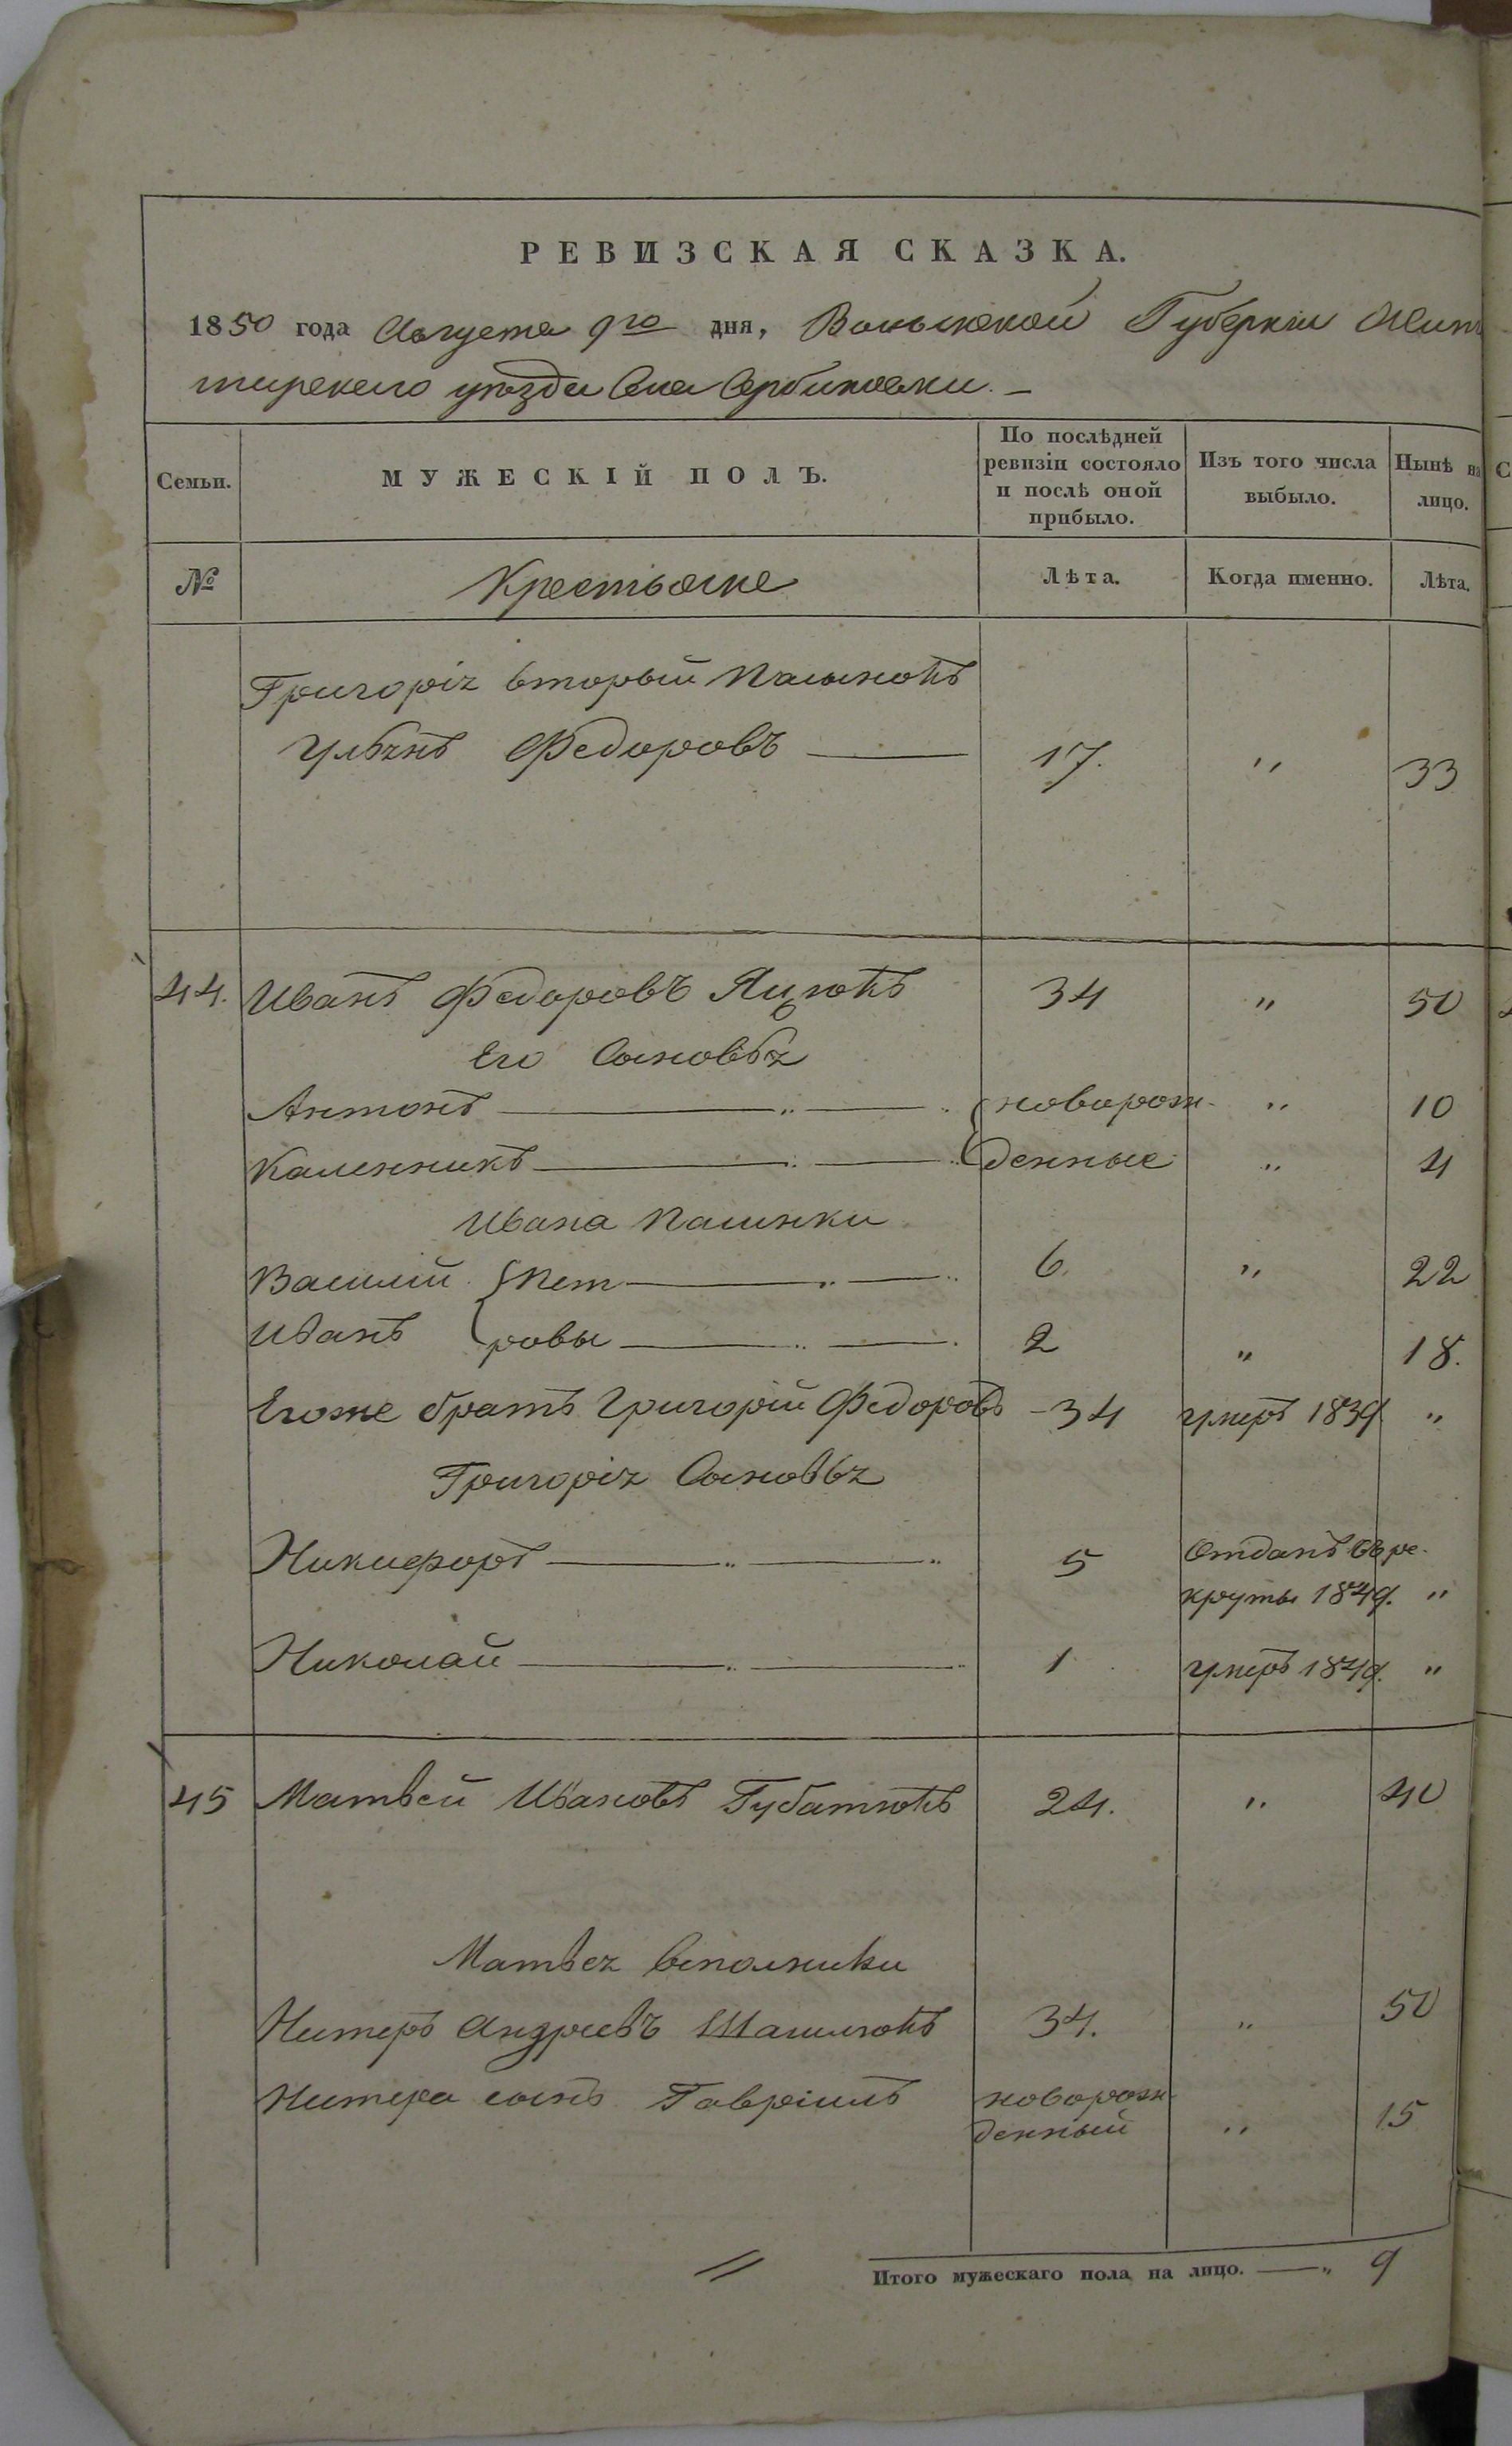 РЕВИЗСКАЯ СКАЗКА.
1850 года Августа 9го дня, Волынской Губерніи Жито
мирскаго уѣзда Села Сербиновки. –
Семьи.
МУЖЕСКІЙ ПОЛЪ.
По послѣдней
ревизіи состояло
и послѣ оной
прибыло.
Изъ того числа
выбыло.
Нынѣ на
лицо.
№
Крестьяне
Лѣта.
Когда именно.
Лѣта.
Григорія вторый пасынокъ
Ульянъ Федоровъ — 17. " 33
44. Иванъ Федоровъ Яцюкъ 34 " 50
Его Сыновья
Антонъ — " — " новорож- " 10
Каленникъ — " — " денные " 4
Ивана пасынки
Василій Пет — " — " 6. " 22
Иванъ ровы — " — " 2 " 18.
Егоже братъ Григорій Федоровъ – 34 умеръ 1839 "
Григорія Сыновья
Никифоръ — " — " 5 Отданъ въ ре-
круты 1849. "
Николай — " — " 1 умеръ 1849. "
45 Матвей Ивановъ Губатюкъ 24. " 40
Матвея всполники
Нестеръ Андреевъ 34. " 50
Нестера сынъ Гавріилъ новорож-
денный " 15
Итого мужескаго пола на лицо. — " 9